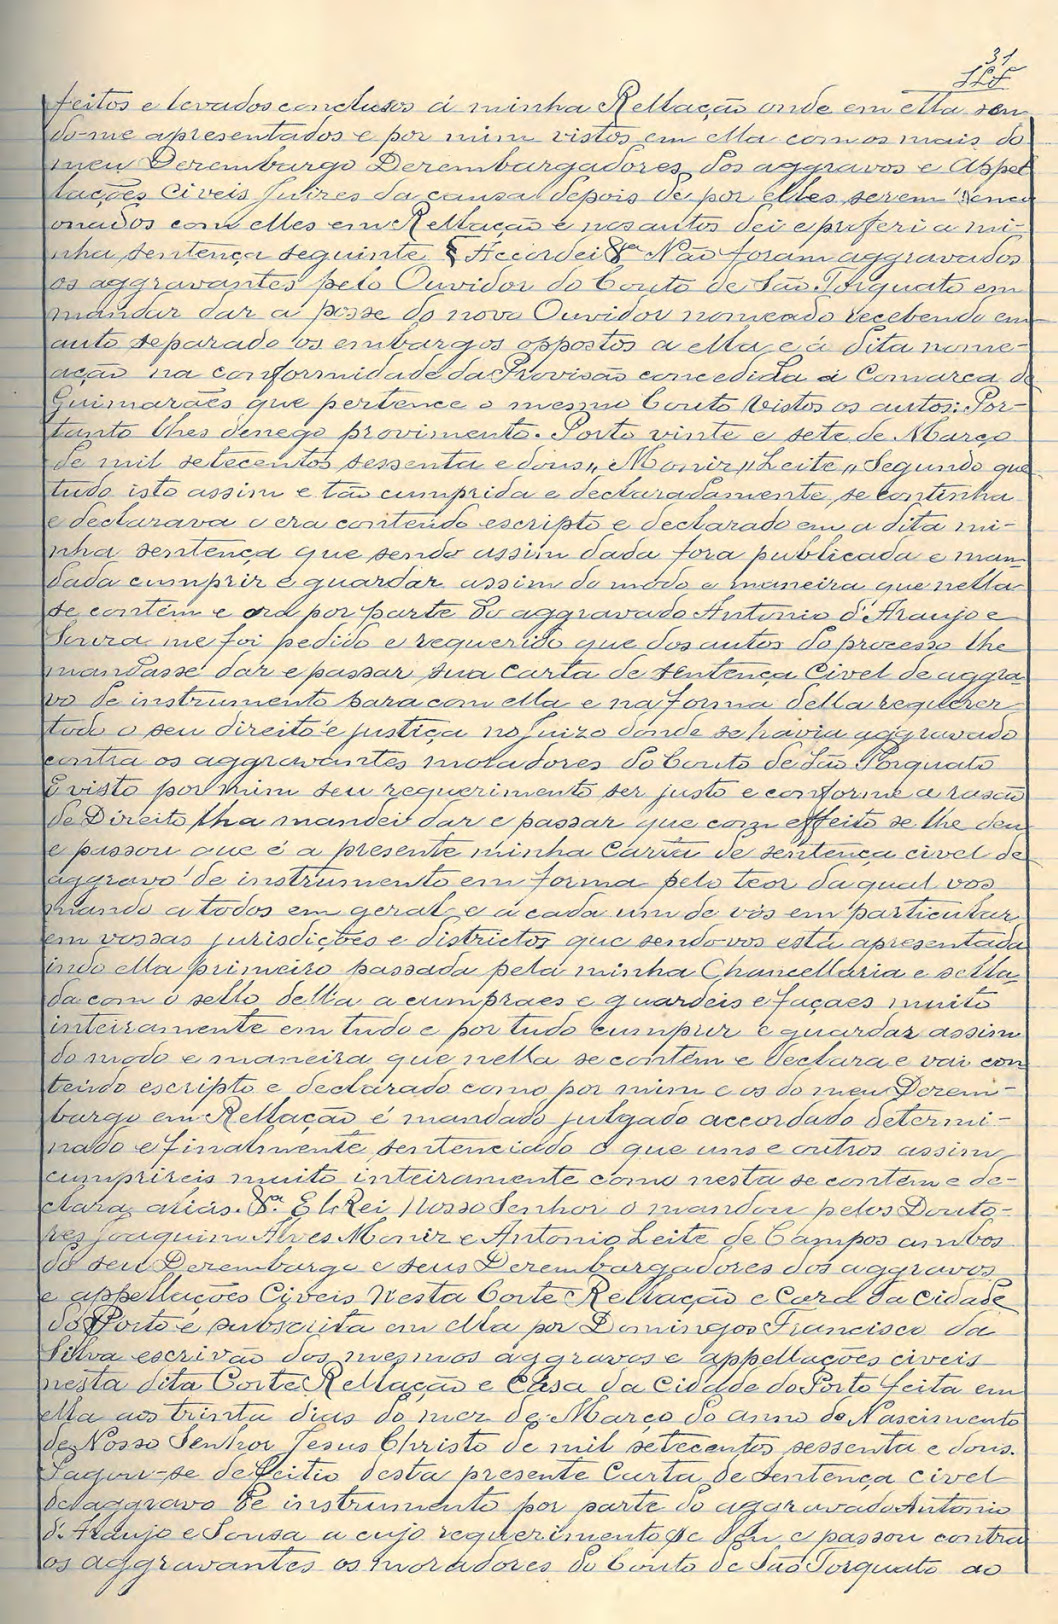 31
feitos e levados conclusos á minha Rellação onde em ella sen
do-me apresentados e por mim vistos em ella com os mais do
meu Dezembargo Dezembargadores dos aggravos e Appel
lações Civeis Juizes da causa depois de por elles serem
onados com elles em Rellação e nos autos dei e proferi a mi-
nha sentença seguinte § Accordei &ª Não foram aggravados
os aggravantes pelo Ouvidor do Couto de São Torquato em
mandar dar a posse do novo Ouvidor nomeado recebendo em
auto separado os embargos oppostos a ella e á dita nome-
ação na conformidade da Provisão concedida á Comarca de
Guimarães que pertence o mesmo Couto Vistos os autos: Por-
tanto lhes denego provimento. Porto vinte e sete de Março
de mil setecentos sessenta e dous,, Monir,, Leite,, Segundo que
tudo isto assim e tão cumprida e declaradamente se continha
e declarava e era contendo escripto e declarado em a dita mi-
nha sentença que sendo assim dada fora publicada e man-
dada cumprir e guardar assim do modo a maneira que nella
se contêm e ora por parte do aggravado Antonio d'Araujo e
Souza me foi pedido e requerido que dos autos do processo lhe
mandasse dar e passar sua carta de sentença Civel de aggra-
vo de instrumento para com ella e na forma della requerer
todo o seu direito e justiça no Juizo donde se havia aggravado
contra os aggravantes moradores do Couto de São Torquato
E visto por mim seu requerimento ser justo e conforme a rasão
de Direito lha mandei dar e passar que com effeito se lhe deu
e passou que é a presente minha Carta de sentença civel de
aggravo de instrumento em forma pelo teor da qual vos
mando a todos em geral e a cada um de vós em particular
em vossas jurisdições e districtos que sendo-vos esta apresentada
indo ella primeiro passada pela minha Chancellaria e sella-
da com o sello della a cumpraes e guardeis e façaes muito
inteiramente em tudo e por tudo cumprir e guardar assim
do modo e maneira que nella se contêm e declara e vai con
teúdo escripto e declarado como por mim e os do meu Dezem-
bargo em Rellação é mandado julgado accordado determi-
nado e finalmente sentenciado o que uns e outros assim
cumprireis muito inteiramente como nesta se contêm e de-
clara aliás. &ª. El-Rei Nosso Senhor o mandou pelos Douto-
res Joaquim Alves Monir e Antonio Leite de Campos ambos
do seu Dezembargo e seus Dezembargadores dos aggravos
e appellações Civeis Nesta Corte Rellação e Caza da Cidade
do Porto e subscrita em ella por Domingos Francisco da
Silva escrivão dos mesmos aggravos e appellações civeis
nesta dita Corte Rellação e Casa da Cidade do Porto feita em
ella aos trinta dias do mez de Março do anno do Nascimento
de Nosso Senhor Jesus Christo de mil setecentos sessenta e dous.
Pagou-se de feitio desta presente Carta de Sentença civel
de aggravo de instrumento por parte do aggravado Antonio
d'Araujo e Sousa a cujo requerimento se deu e passou contra
os aggravantes os moradores do Couto de São Torquato ao